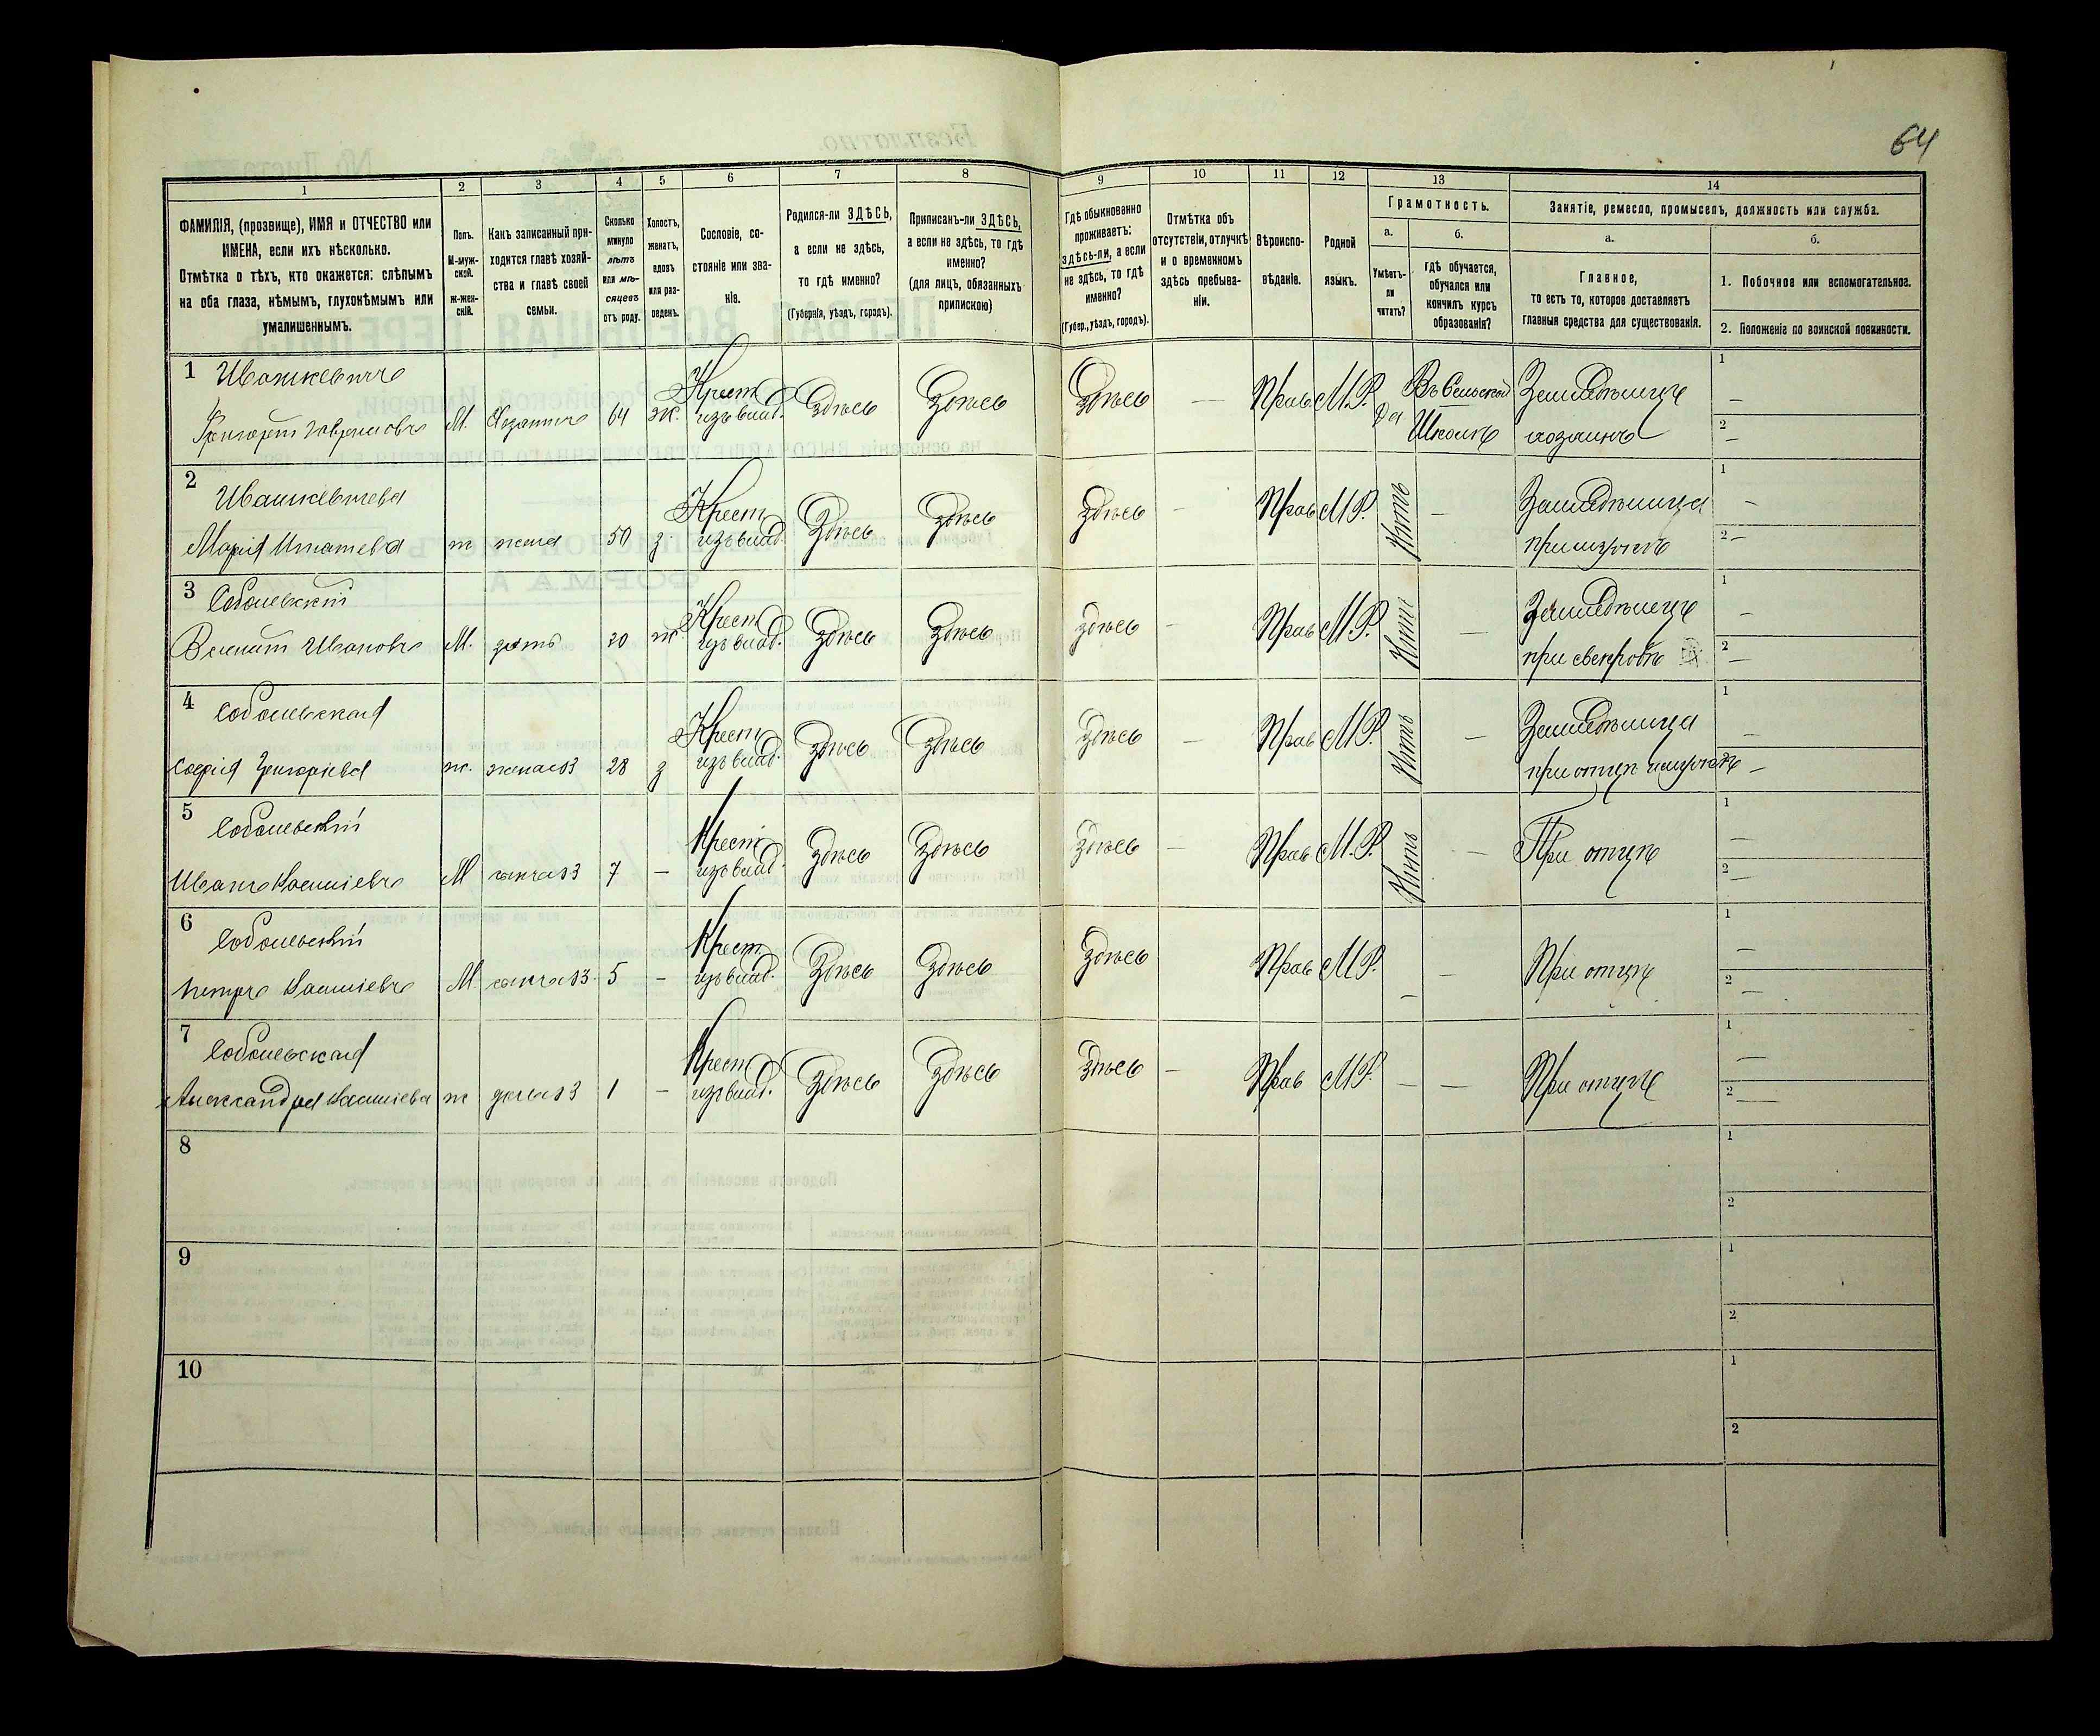 64
1 2 3 4 5 6 7 8 9 10 11 12 13 14
ФАМИЛІЯ, (прозвище), ИМЯ и ОТЧЕСТВО или
ИМЕНА, если ихъ нѣсколько.
Отмѣтка о тѣхъ, кто окажется: слѣпымъ
на оба глаза, нѣмымъ, глухонѣмымъ или
умалишеннымъ.
Полъ.
М-муж-
ской.
ж-жен-
скій.
Какъ записанный при-
ходится главѣ хозяй-
ства и главѣ своей
семьи.
Сколько
минуло
лѣтъ
или мѣ-
сяцевъ
отъ роду.
Холостъ,
женатъ,
вдовъ
или раз-
веденъ.
Сословіе, со-
стояніе или зва-
ніе.
Родился-ли ЗДѢСЬ,
а если не здѣсь,
то гдѣ именно?
(Губернія, уѣздъ, городъ).
Приписанъ-ли ЗДѢСЬ,
а если не здѣсь, то гдѣ
именно?
(для лицъ, обязанныхъ
припискою)
Гдѣ обыкновенно
проживаетъ:
здѣсь-ли, а если
не здѣсь, то гдѣ
именно?
(Губер., уѣздъ, городъ).
Отмѣтка объ
отсутствіи, отлучкѣ
и о временномъ
здѣсь пребыва-
ніи.
Вѣроиспо-
вѣданіе.
Родной
языкъ.
Грамотность.
а.
Умѣетъ-
ли
читать?
б.
гдѣ обучается,
обучался или
кончилъ курсъ
образованія?
Занятіе, ремесло, промыселъ, должность или служба.
а.
Главное,
то есть то, которое доставляетъ
главныя средства для существованія.
б.
1. Побочное или вспомогательное.
2. Положеніе по воинской повинности.
1 Ивашкевичъ Крест. Въ Сельской Земледѣлецъ 1 —
Григорій М. Хозяинъ 64 ж. изъ влад. Здѣсь Здѣсь Здѣсь — Прав. М.Р. Да Школѣ хозяинъ 2 —
2 Ивашкевичева Крест. Земледѣлица 1 —
Марія Игнатьева ж жена 50 з изъ влад. Здѣсь Здѣсь Здѣсь — Прав М.Р. Нѣтъ — при мужѣ 2 —
3 Соболевскій Крест. Земледѣлецъ 1 —
Ивановъ М. зять 30 ж изъ влад. Здѣсь Здѣсь Здѣсь — Прав М.Р. Нѣтъ — при свекровѣ 2 —
4 Соболевская Крест. Земледѣлица 1 —
Григоріева ж. жена з3 28 з изъ влад. Здѣсь Здѣсь Здѣсь — Прав М.Р. Нѣтъ — при отцѣ и мужѣ 2 —
5 Соболевскій Крест. 1 —
Иванъ М сынъ з3 7 — изъ влад. Здѣсь Здѣсь Здѣсь — Прав М.Р. Нѣтъ — При отцѣ 2 —
6 Соболевскій Крест. 1 —
Петръ М. сынъ з3. 5 — изъ влад. Здѣсь Здѣсь Здѣсь Прав М.Р. — — При отцѣ 2 —
7 Соболевская Крест. 1 —
Александра ж дочь з3 1 — изъ влад. Здѣсь Здѣсь Здѣсь — Прав М.Р. — — При отцѣ 2 —
8 1
2
9 1
2
10 1
2